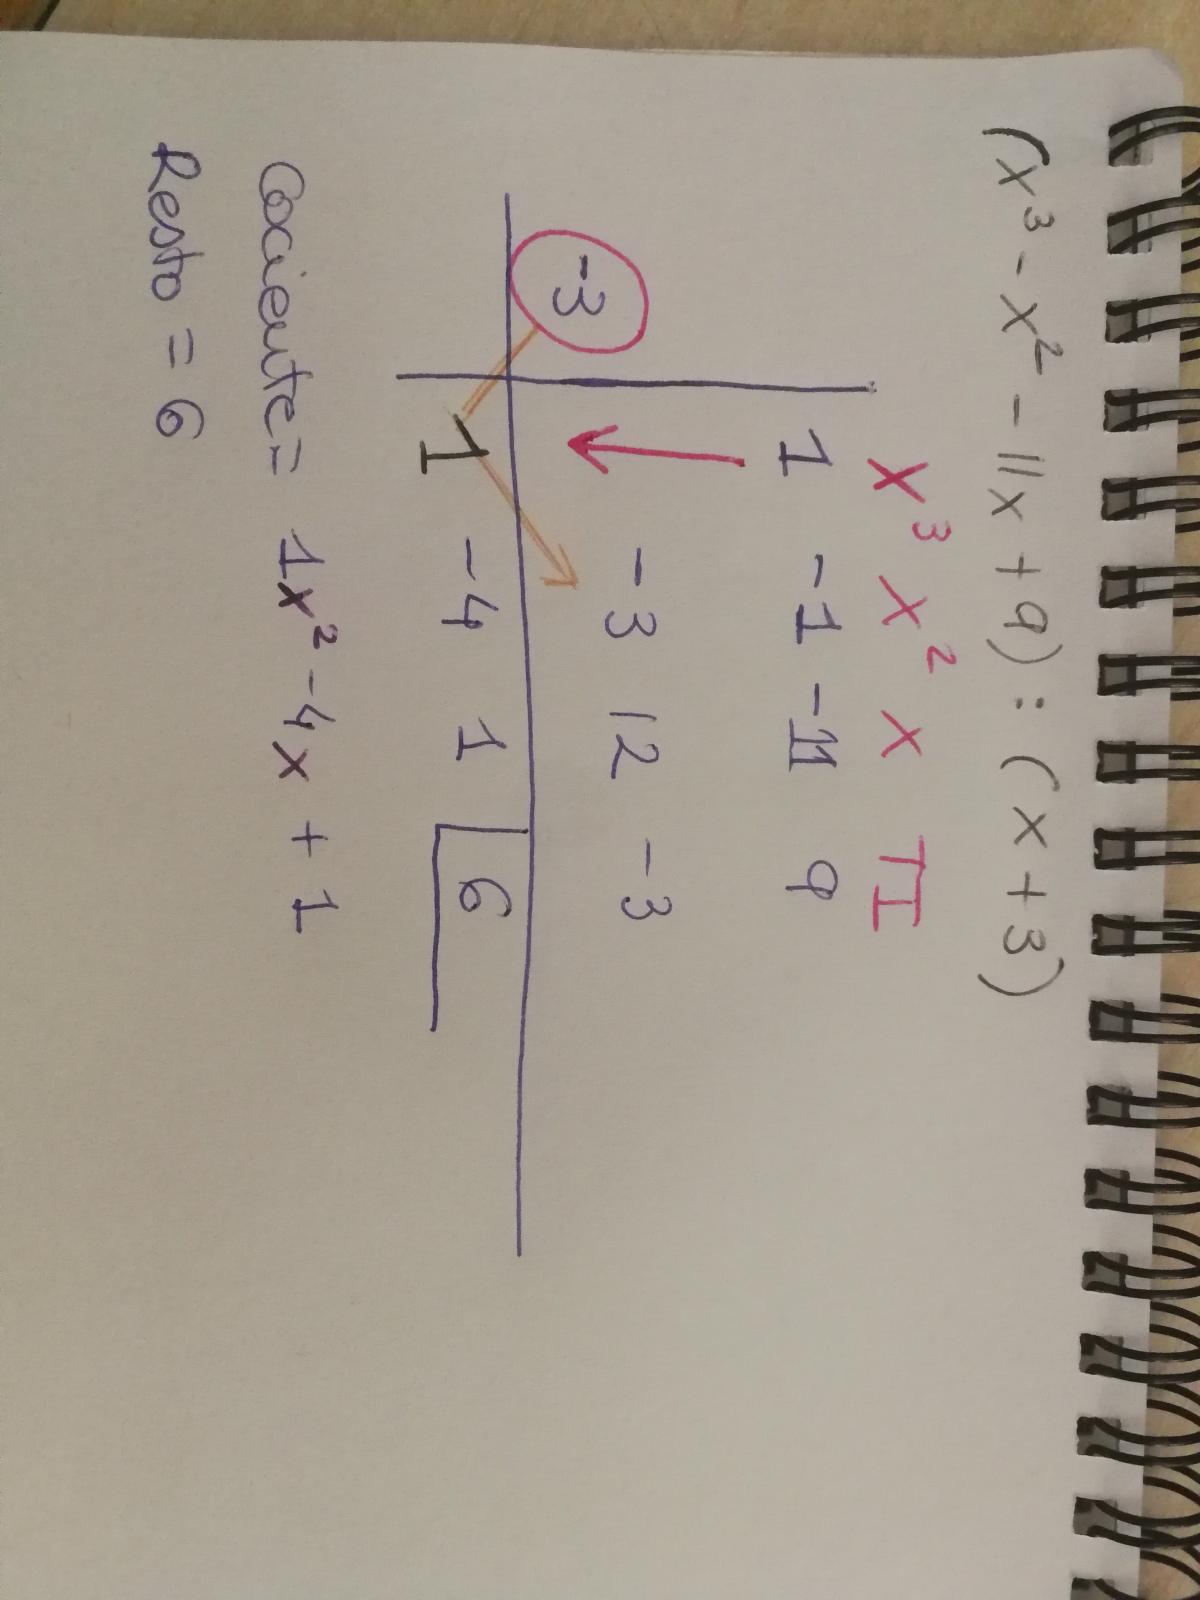 (x³ - x² - 11x + 9) : (x + 3)
x³ x² x TI
1 -1 -11 9
-3 -3 12 -3
1 -4 1 6
Cociente = 1x² - 4x + 1
Resto = 6